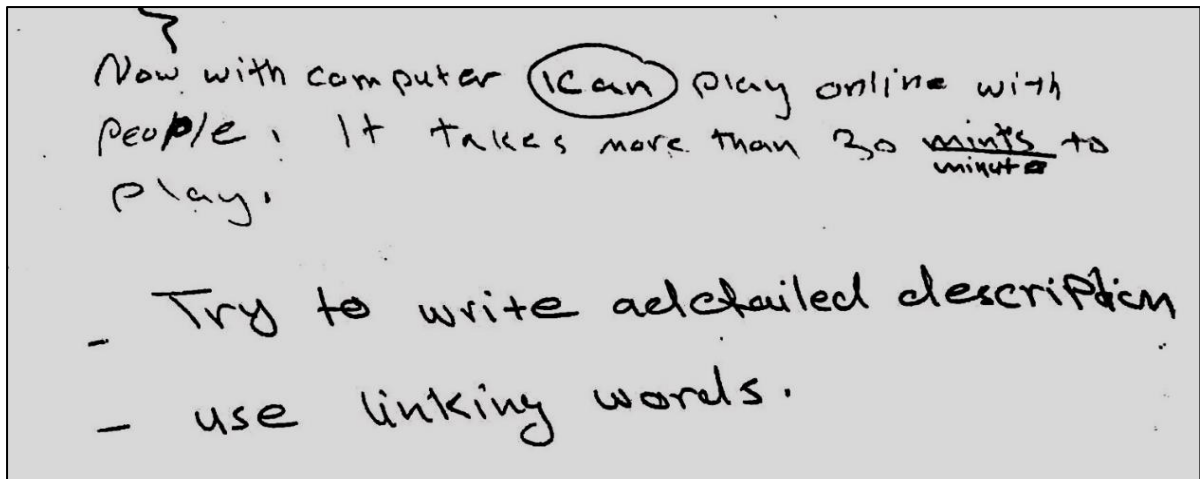 Now with computer ICan play online with
people. It takes more than 30 mints to
minute
play.
- Try to write adetailed description
- use linking words.